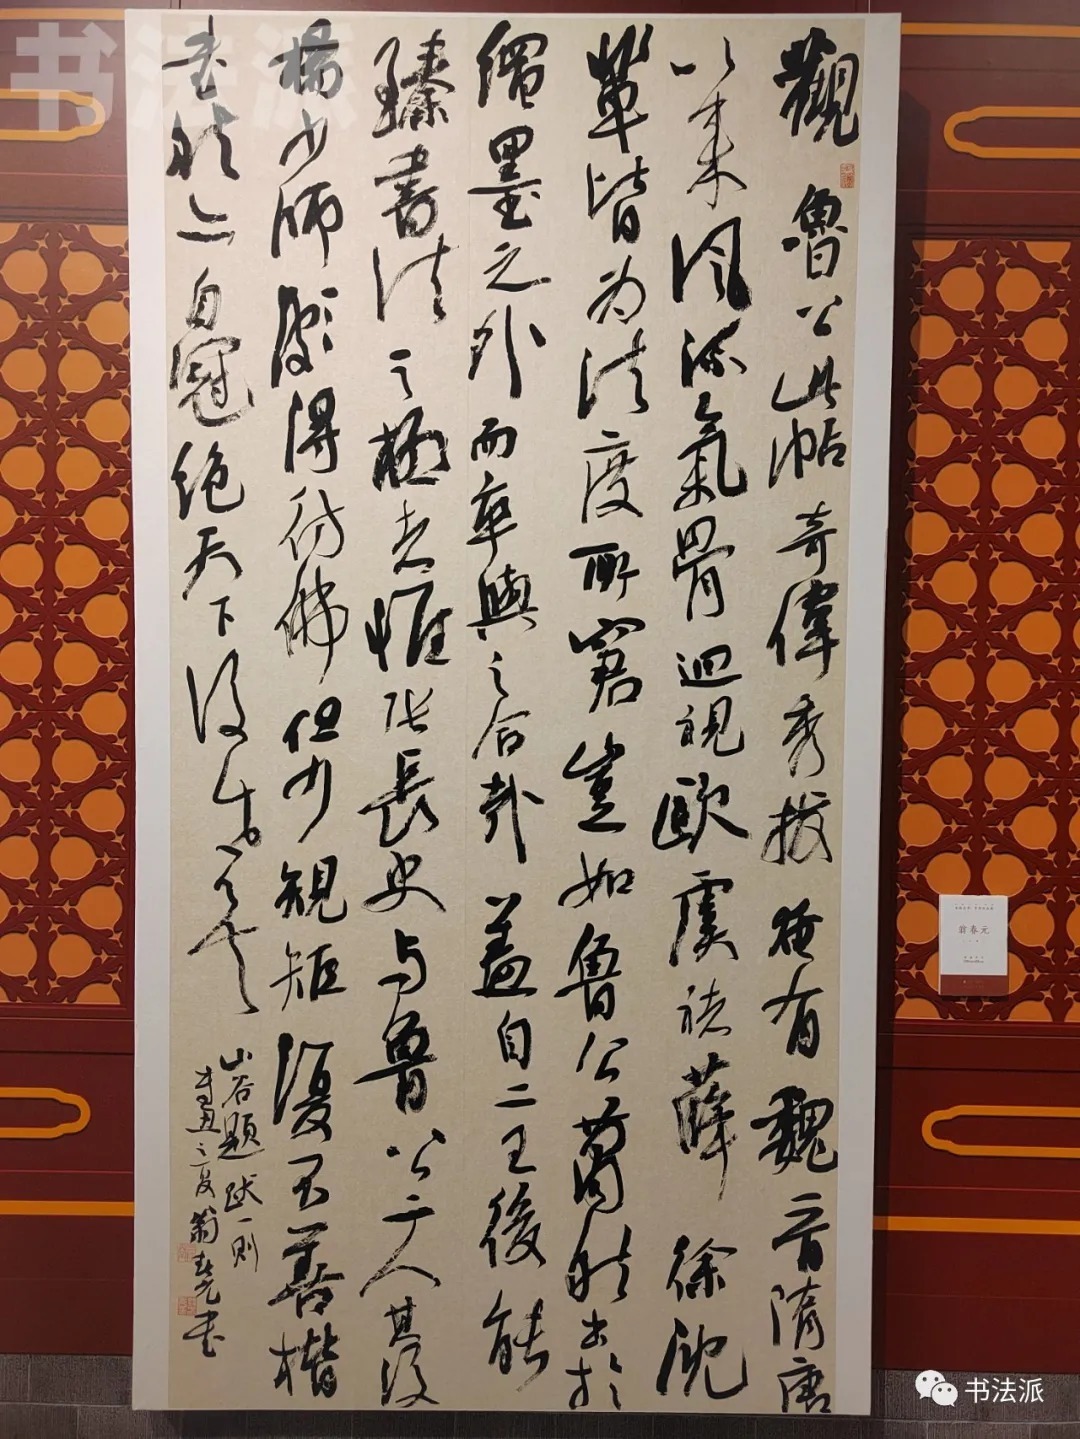 书法派
觀魯公此帖奇偉秀拔奄有魏晉隋唐
以來風流氣骨迴視歐虞褚薛徐沈
輩皆为法度所窘豈如魯公蕭然出於
繩墨之外而卒與之合哉蓋自二王後能
臻書法之極者惟張長史与魯公二人其後
楊少師頗得仿佛但少規矩復不善楷
書然亦自冠絕天下後世矣
山谷題跋一則
之夏翁春元書
翁春元
书法派